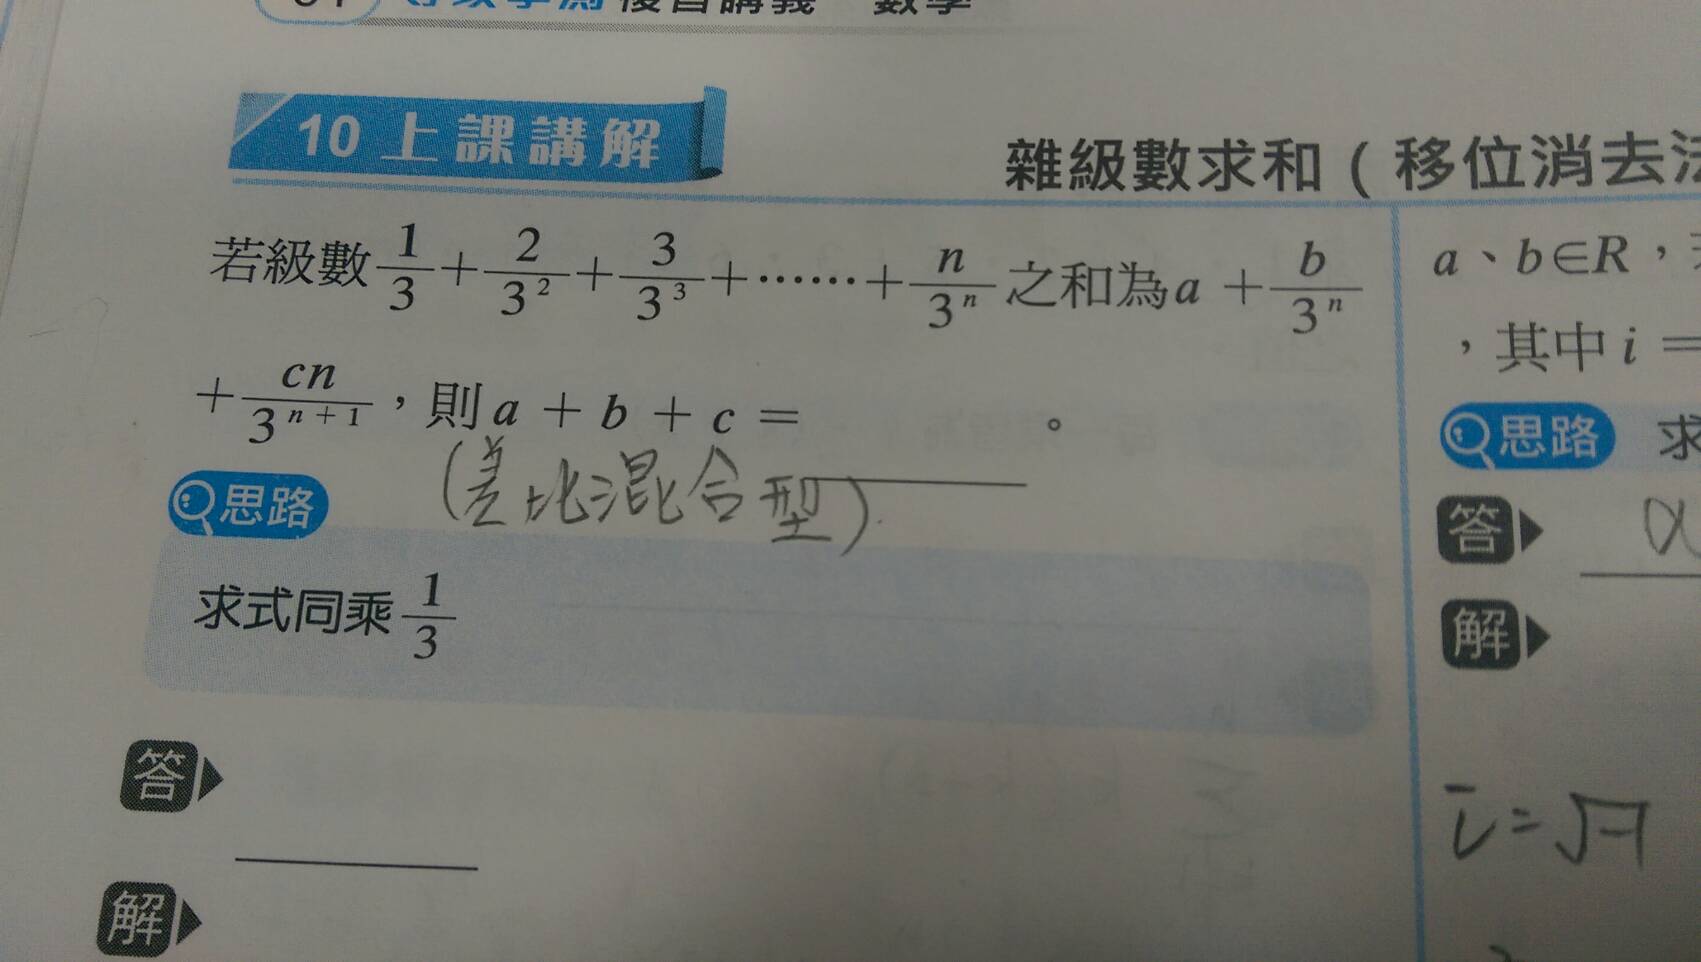 複習講義 數學
10 上課講解
雜級數求和(移位消去法
若級數 1/3 + 2/3² + 3/3³ + …… + n/3ⁿ 之和為 a + b/3ⁿ
+ cn/3ⁿ⁺¹,則 a + b + c = 。
(差比混合型).
思路
求式同乘 1/3
答
解
a、b∈R,
,其中 i =
思路 求
答 α
解
i = √-1